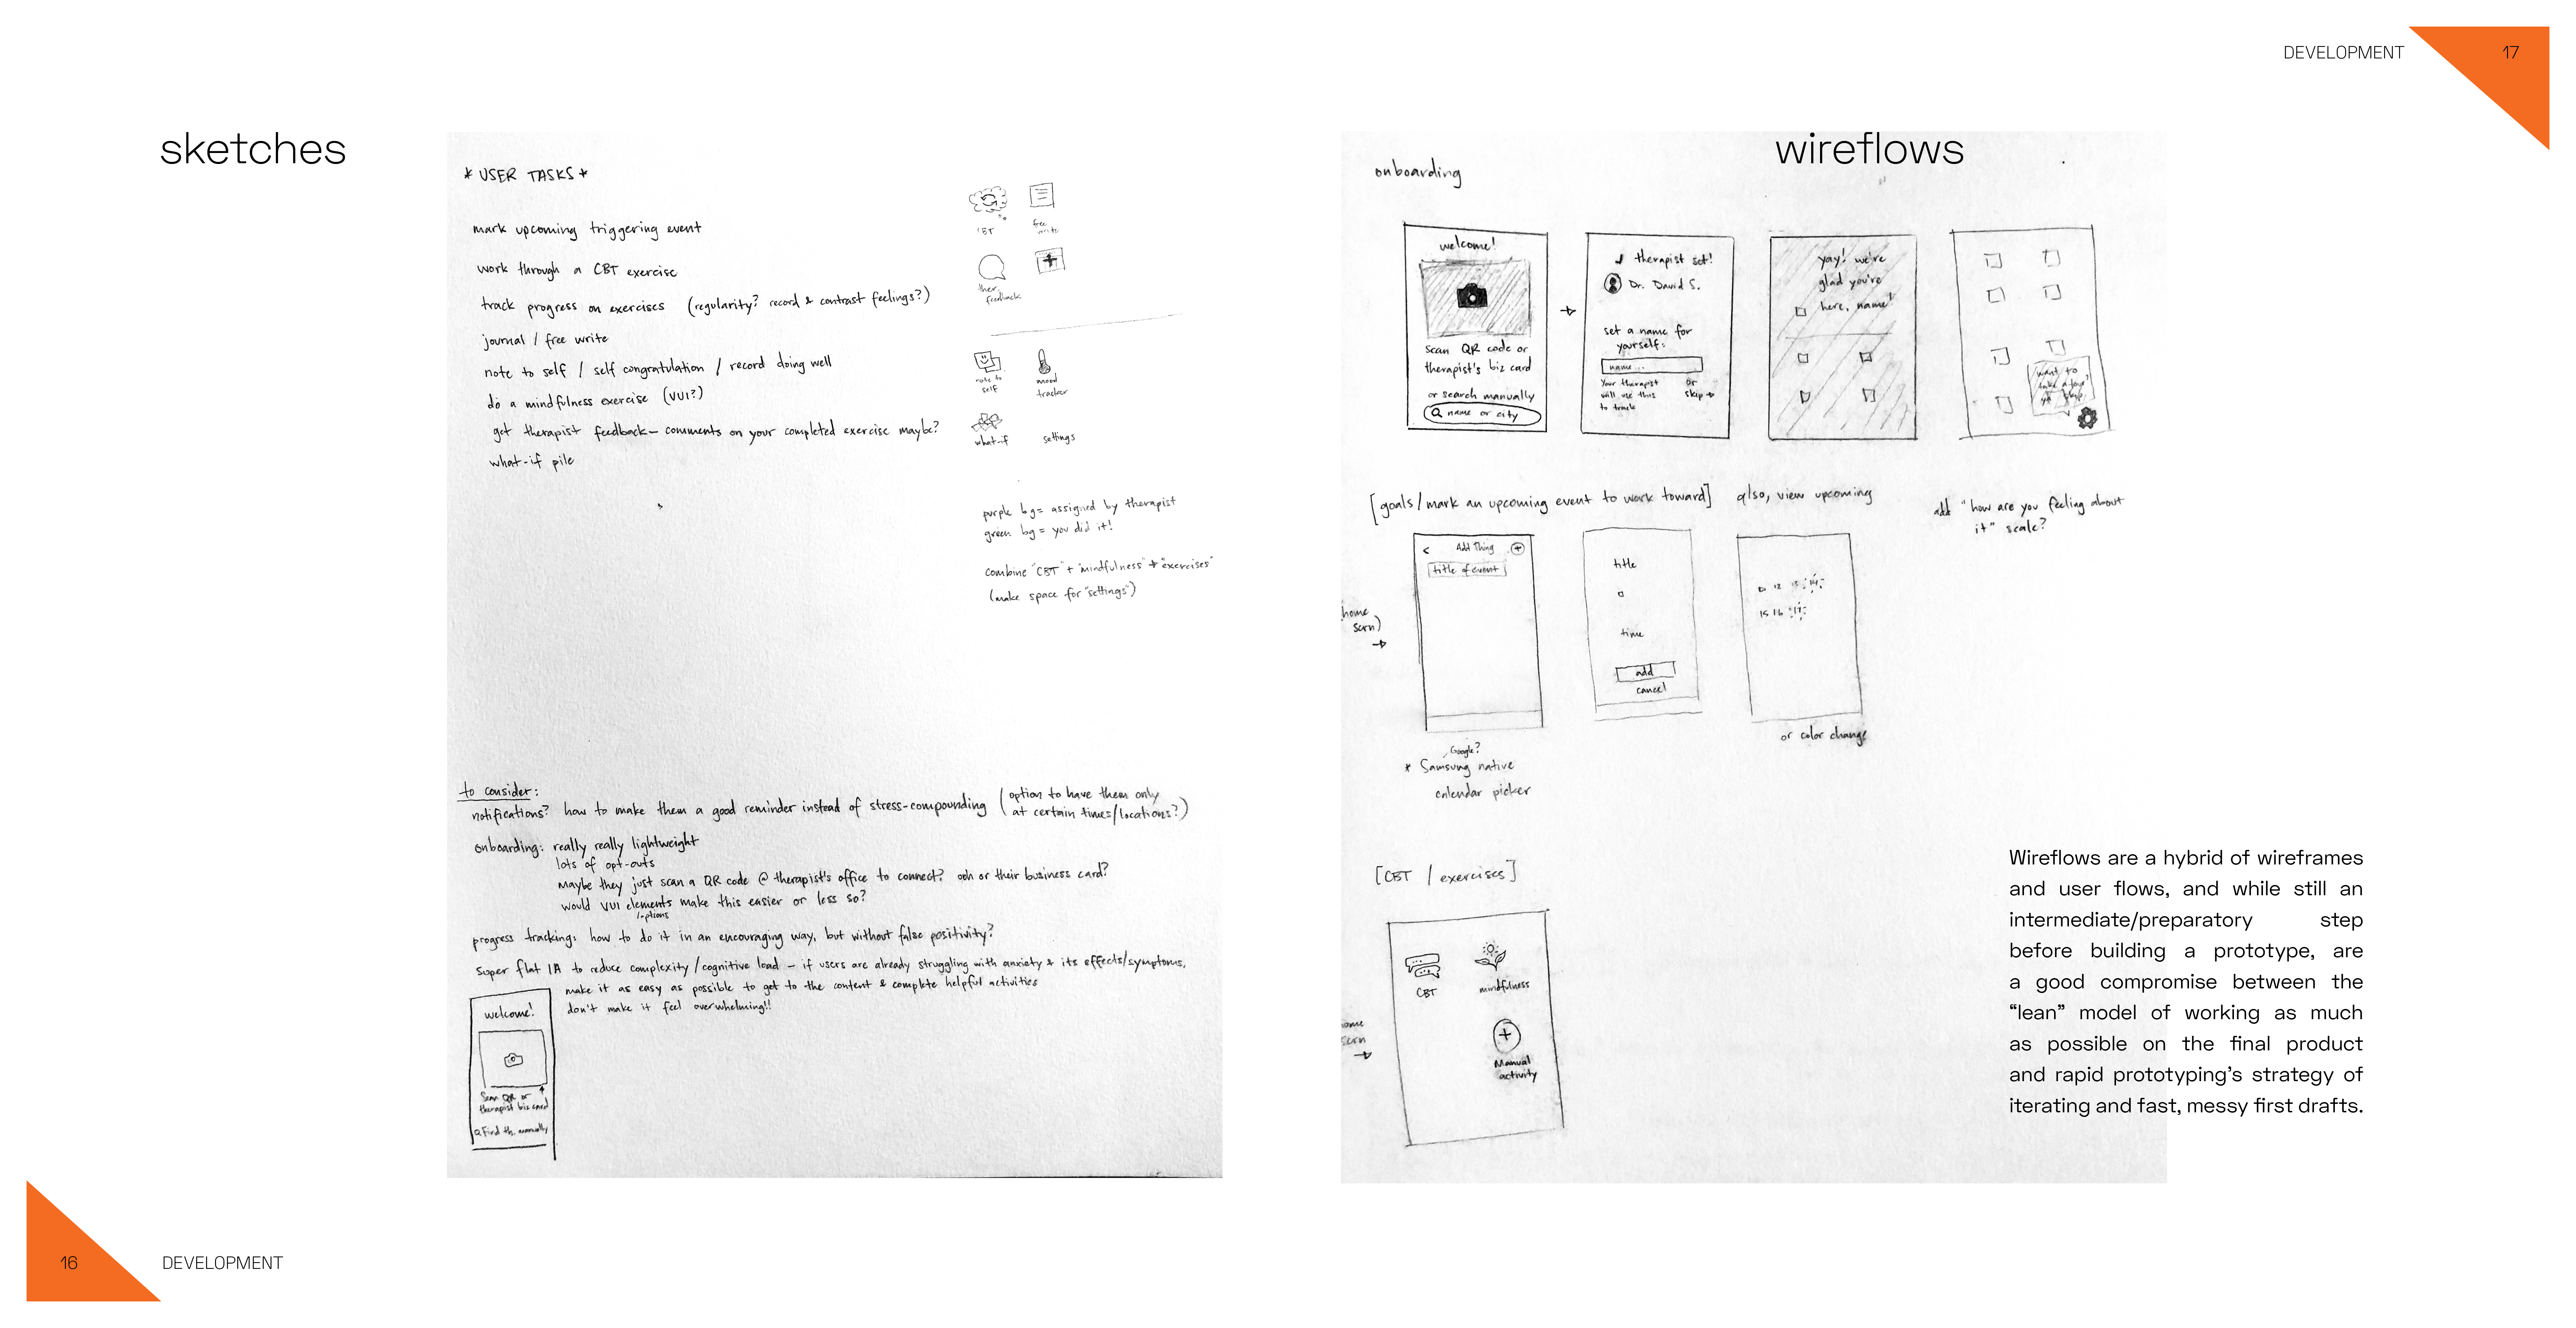 DEVELOPMENT
17
sketches
* USER TASKS *
mark upcoming triggering event
work through a CBT exercise
track progress on exercises (regularity? record & contrast feelings?)
journal / free write
note to self / self congratulation / record doing well
do a mindfulness exercise (VUI?)
get therapist feedback – comments on your completed exercise maybe?
what-if pile
CBT
free
write
ther.
feedback
note to
self
mood
tracker
what-if
settings
purple bg = assigned by therapist
green bg = you did it!
combine "CBT" + "mindfulness" → "exercises"
(make space for "settings")
to consider:
notifications? how to make them a good reminder instead of stress-compounding (option to have them only
at certain times/locations?)
onboarding: really really lightweight
lots of opt-outs
maybe they just scan a QR code @ therapist's office to connect? ooh or their business card?
would VUI elements make this easier or less so?
/options
progress tracking: how to do it in an encouraging way, but without false positivity?
super flat IA to reduce complexity/cognitive load – if users are already struggling with anxiety & its effects/symptoms,
make it as easy as possible to get to the content & complete helpful activities
don't make it feel overwhelming!!
welcome!
Scan QR or
therapist biz card
Find th. manually
16
DEVELOPMENT
wireflows
onboarding
welcome!
Scan QR code or
therapist's biz card
or search manually
name or city
therapist set!
Dr. David S.
set a name for
yourself:
name...
Your therapist
will use this
to track
or
skip →
yay! we're
glad you're
here, name!
want to
take a tour?
skip
[goals/mark an upcoming event to work toward] also, view upcoming
add "how are you feeling about
it" scale?
(home
scrn)
→
< Add Thing +
title of event
title
time
add
cancel
12
14
15 16 17
or color change
Google?
* Samsung native
calendar picker
[CBT / exercises]
scrn
→
CBT
mindfulness
+
Manual
activity
Wireflows are a hybrid of wireframes
and user flows, and while still an
intermediate/preparatory step
before building a prototype, are
a good compromise between the
“lean” model of working as much
as possible on the final product
and rapid prototyping’s strategy of
iterating and fast, messy first drafts.